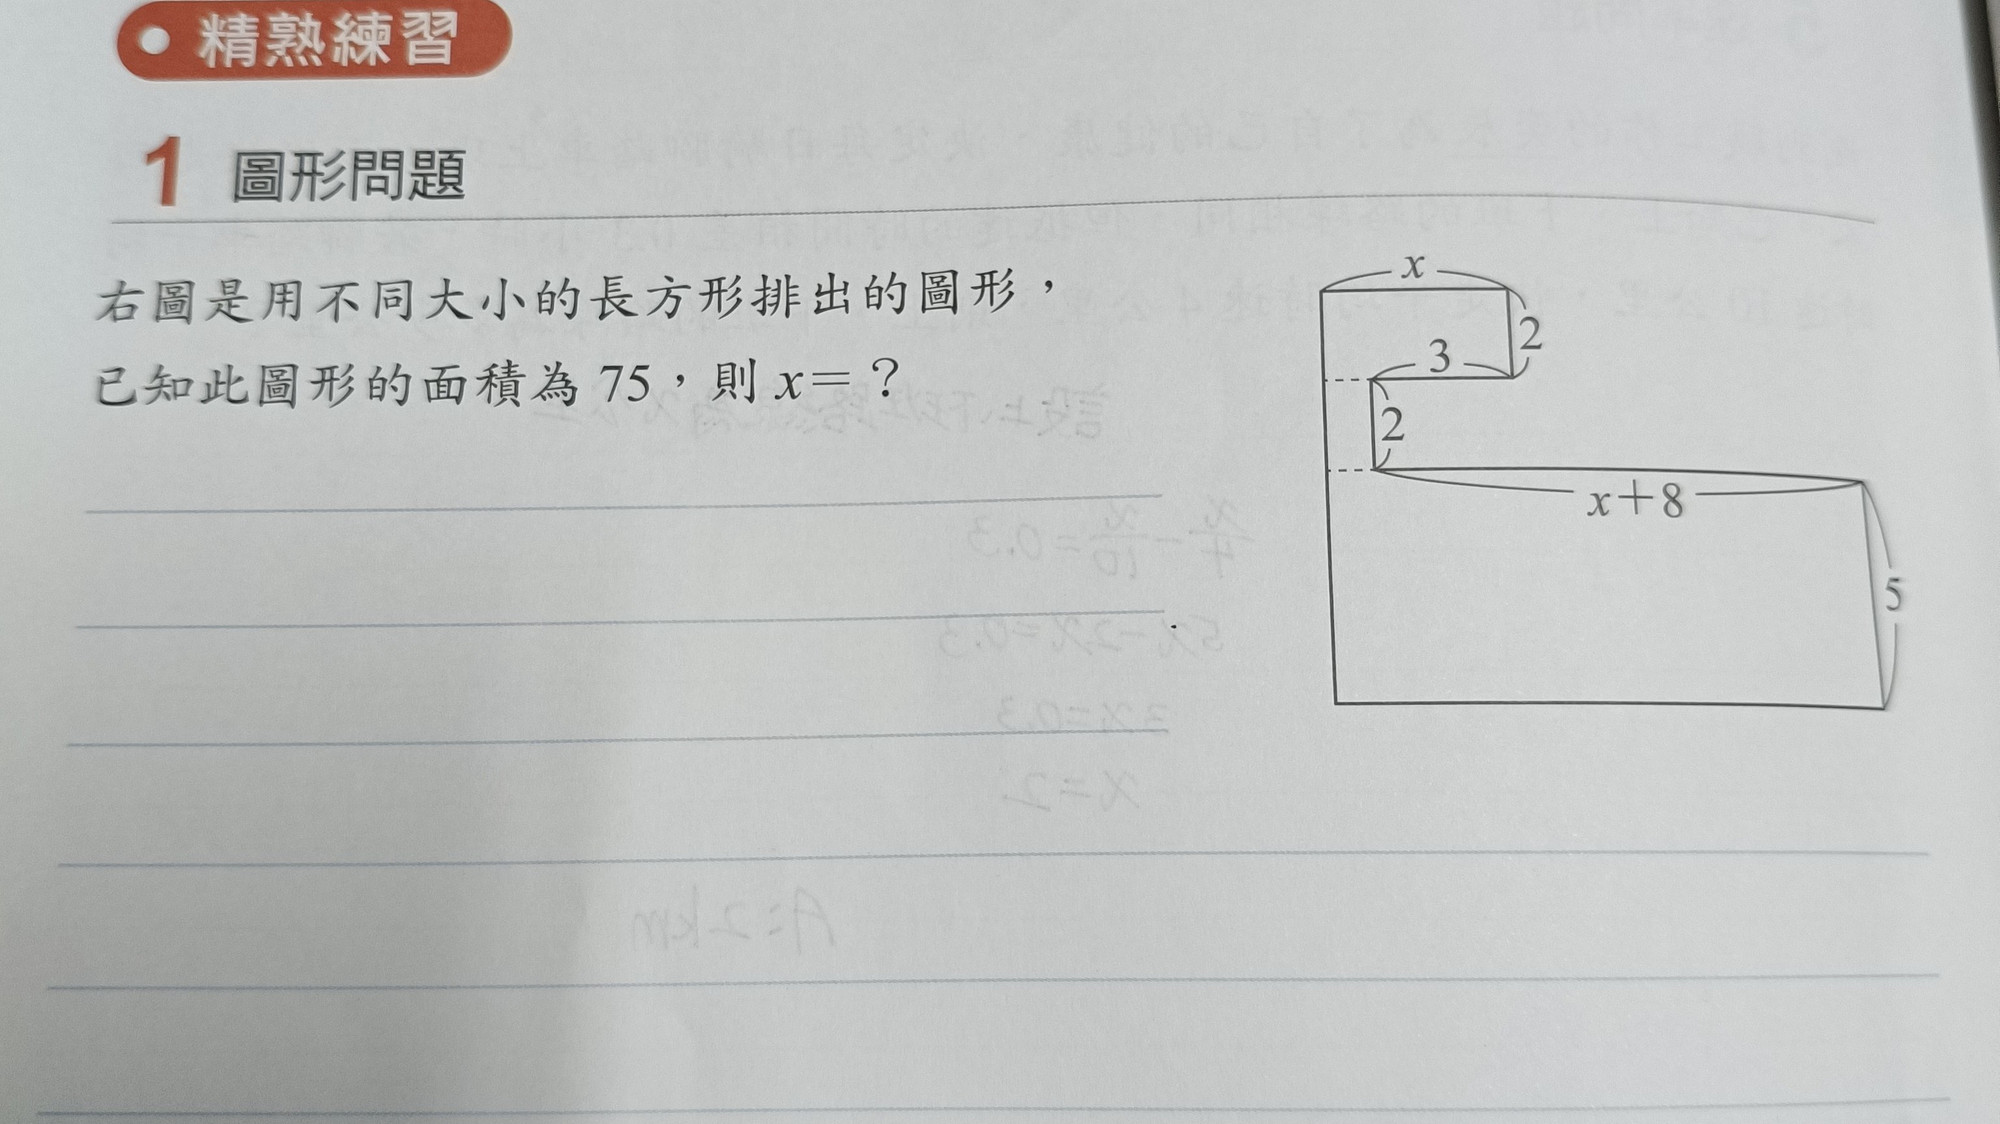 精熟練習
1 圖形問題
右圖是用不同大小的長方形排出的圖形，
已知此圖形的面積為 75，則 x＝？
x
2
3
2
x＋8
5